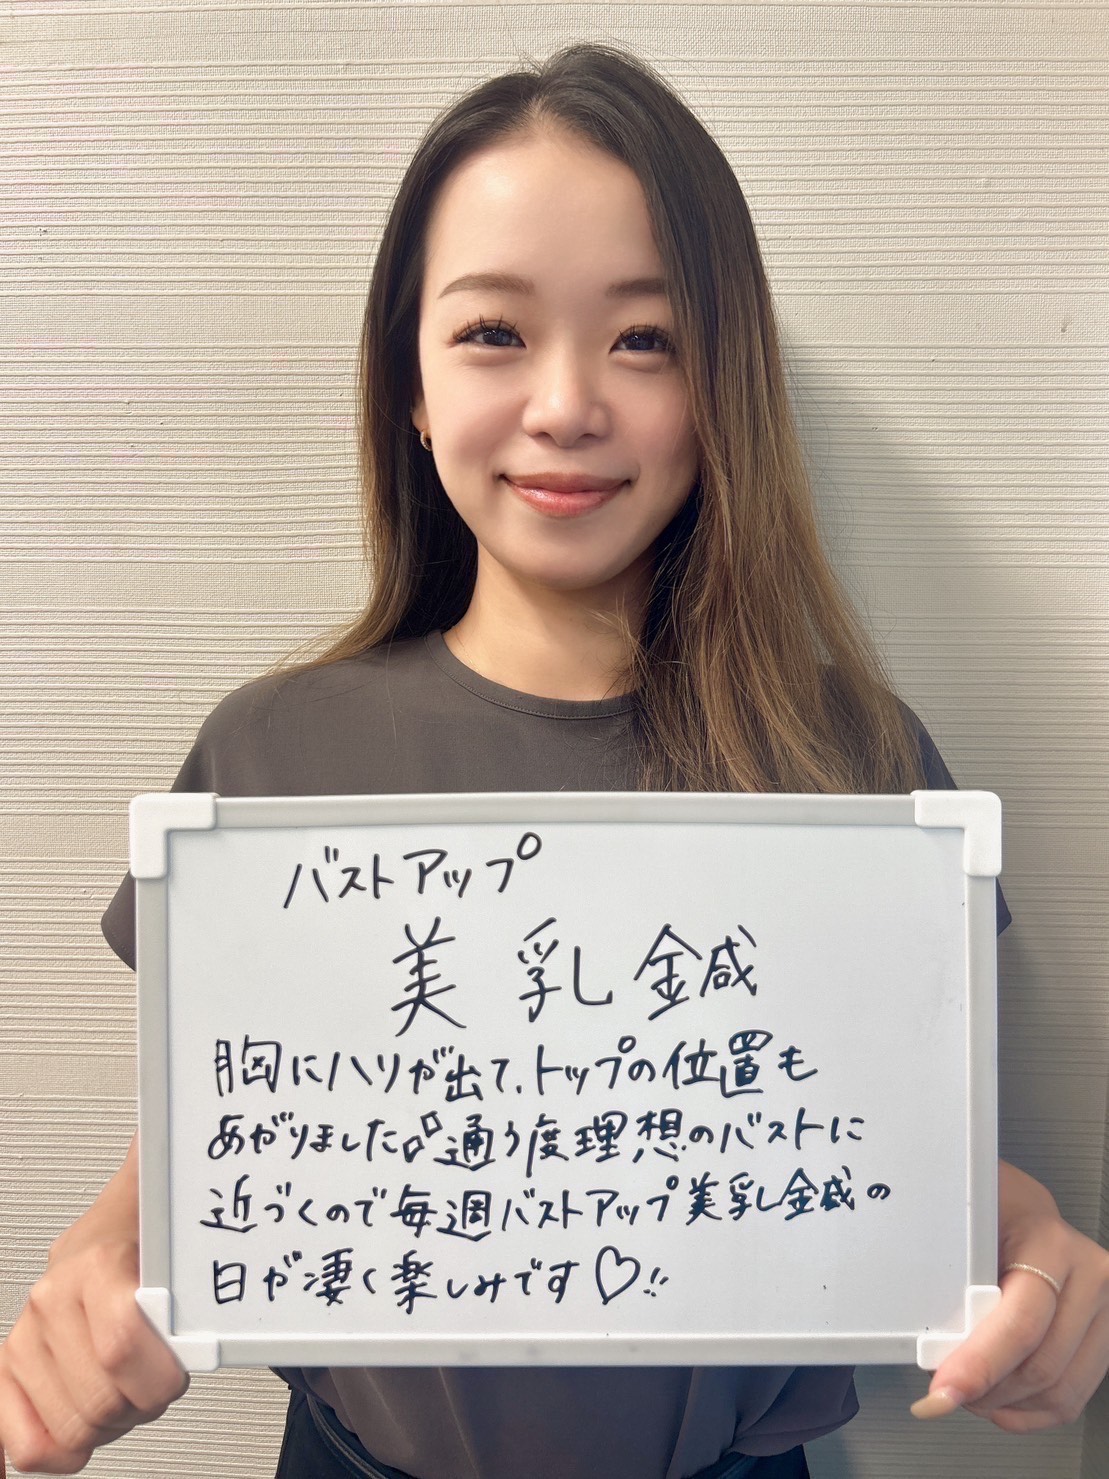 バストアップ
美乳鍼
胸にハリが出て、トップの位置も
あがりました。通う度理想のバストに
近づくので毎週バストアップ美乳鍼の
日が凄く楽しみです♡!!